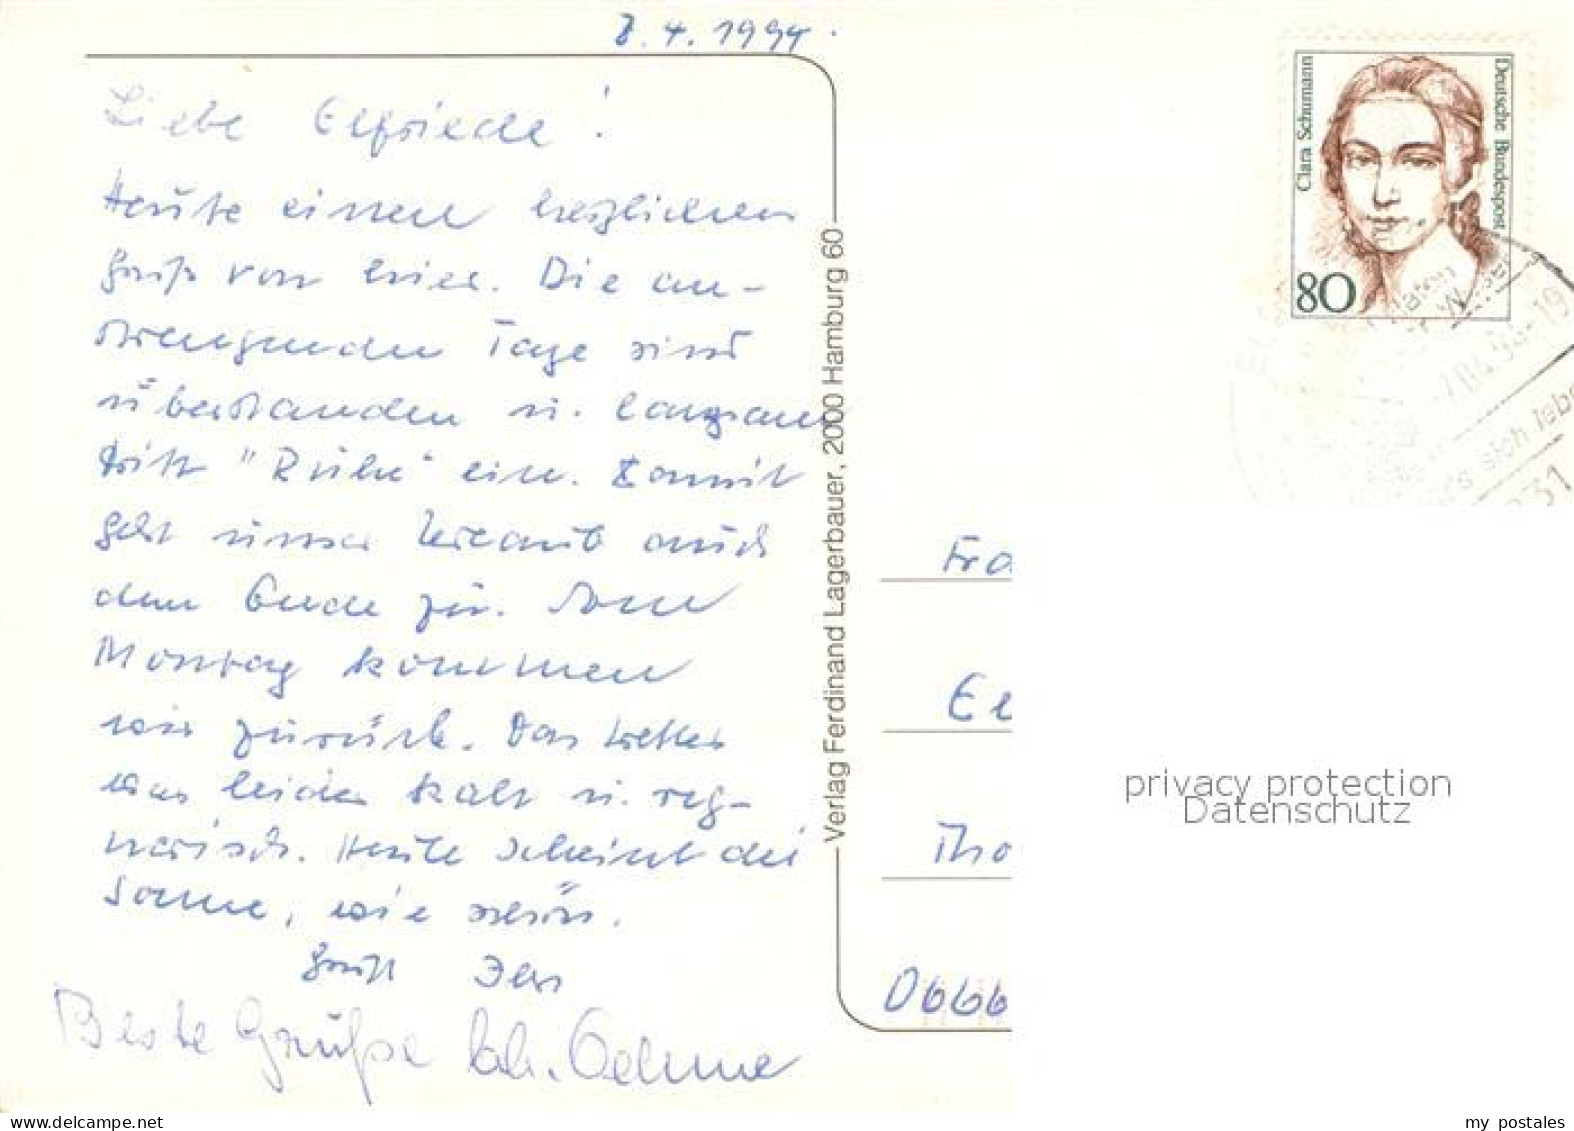 8.4.1994.
Liebe Elfriede!
Heute einen herzlichen
Gruß von hier. Die an-
strengenden Tage sind
überstanden u. langsam
tritt "Ruhe" ein. Damit
geht unser Urlaub auch
dem Ende zu. Am
Montag kommen
wir zurück. Das Wetter
war leider kalt u. reg-
nerisch. Heute scheint die
Sonne, wie schön.
Gruß
Beste Grüße
Verlag Ferdinand Lagerbauer, 2000 Hamburg 60
Clara Schumann
Deutsche Bundespost
80
-19
's sich lebe
31
Fra
El
Tho
0666
privacy protection
Datenschutz
www.delcampe.net
my postales